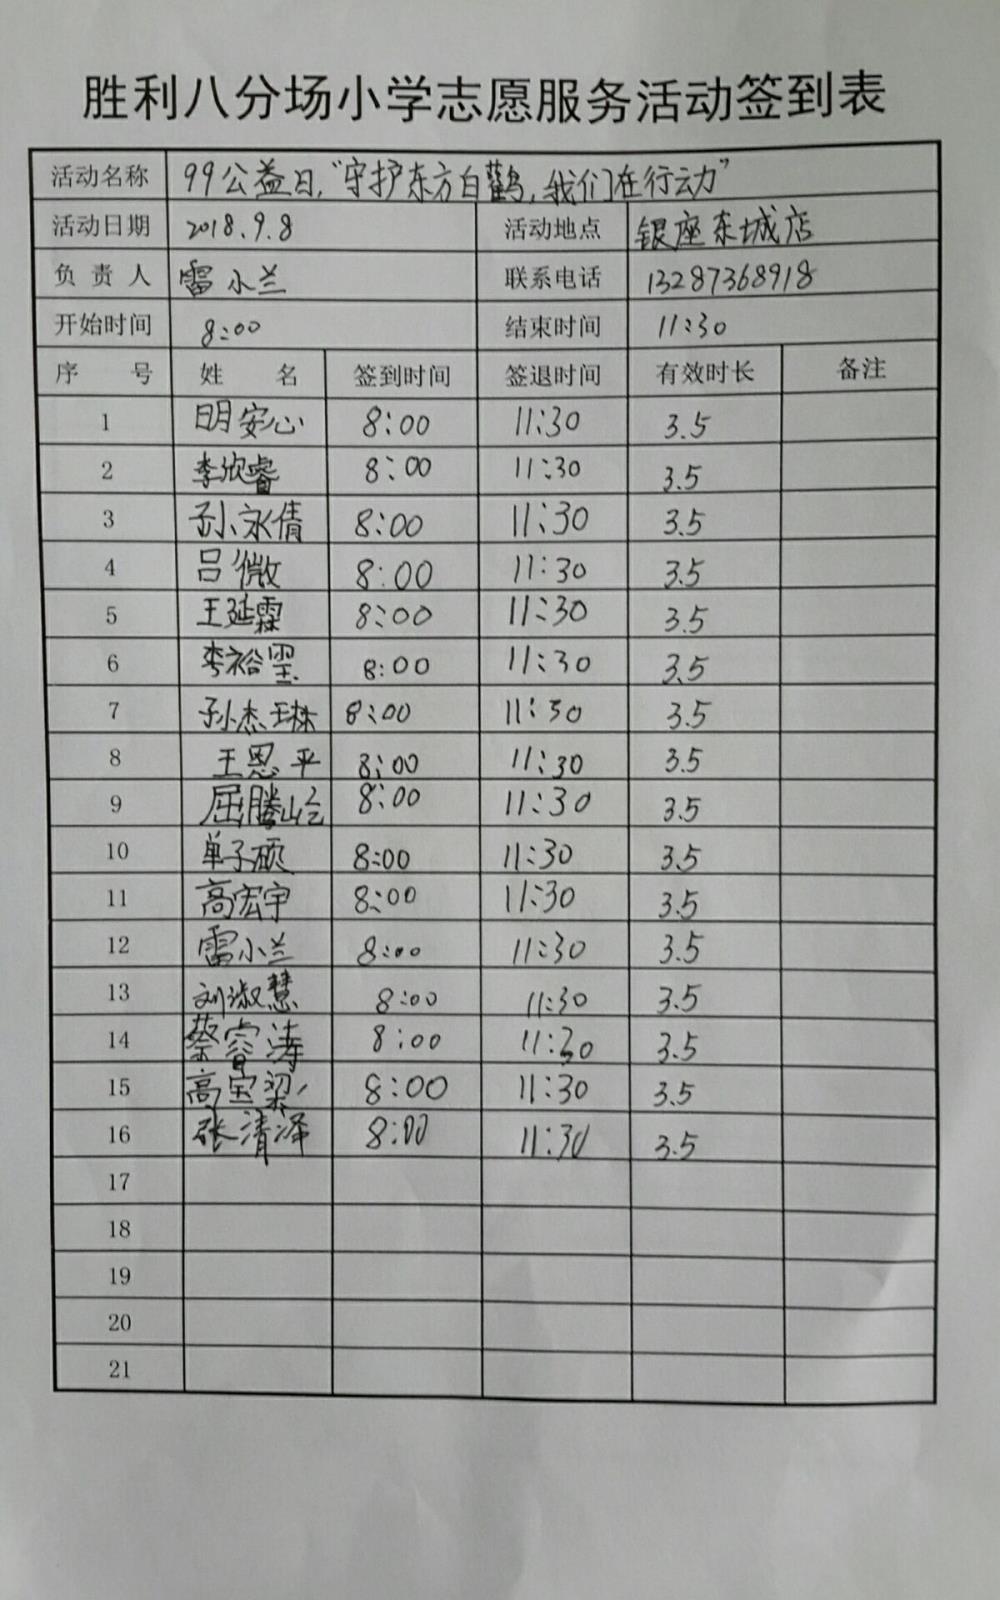 胜利八分场小学志愿服务活动签到表
活动名称 99公益日,"守护东方白鹳,我们在行动"
活动日期 2018.9.8 活动地点 银座东城店
负责人 雷小兰 联系电话 13287368918
开始时间 8:00 结束时间 11:30
序号 姓名 签到时间 签退时间 有效时长 备注
1 明安心 8:00 11:30 3.5
2 李欣睿 8:00 11:30 3.5
3 孙永倩 8:00 11:30 3.5
4 吕微 8:00 11:30 3.5
5 王延霖 8:00 11:30 3.5
6 李裕 8:00 11:30 3.5
7 孙杰琳 8:00 11:30 3.5
8 王恩平 8:00 11:30 3.5
9 屈腾 8:00 11:30 3.5
10 单子硕 8:00 11:30 3.5
11 高宏宇 8:00 11:30 3.5
12 雷小兰 8:00 11:30 3.5
13 刘淑慧 8:00 11:30 3.5
14 蔡睿涛 8:00 11:30 3.5
15 高宝梁 8:00 11:30 3.5
16 张清泽 8:00 11:30 3.5
17
18
19
20
21